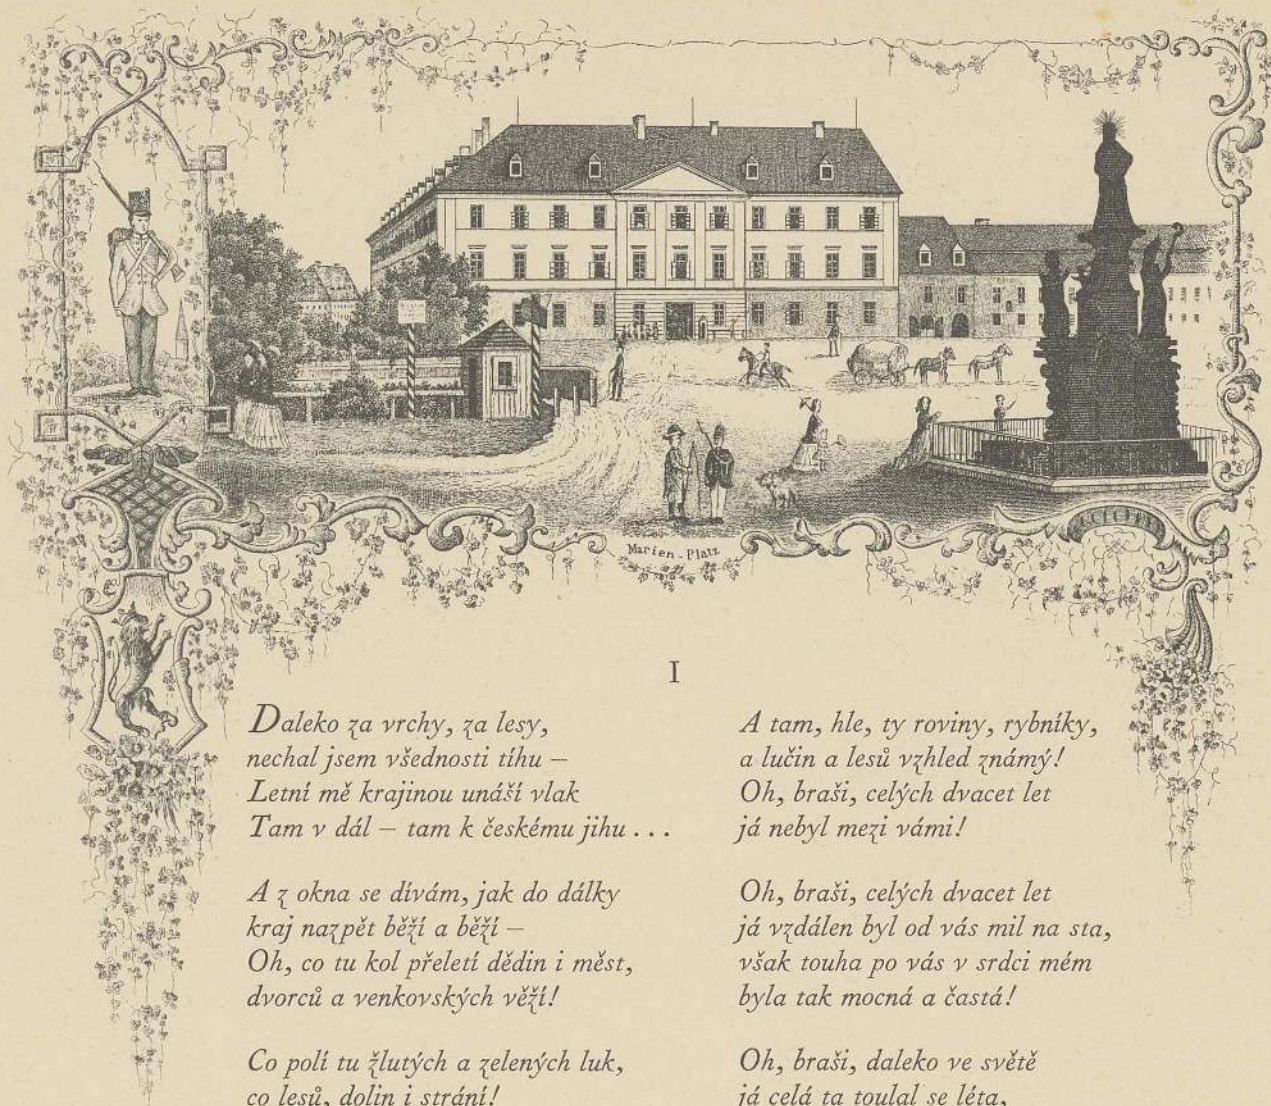 Marien-Platz
I
Daleko za vrchy, za lesy,
nechal jsem všednosti tíhu –
Letní mě krajinou unáší vlak
Tam v dál – tam k českému jihu . . .
A z okna se dívám, jak do dálky
kraj nazpět běží a běží –
Oh, co tu kol přeletí dědin i měst,
dvorců a venkovských věží!
Co polí tu žlutých a zelených luk,
co lesů, dolin i strání!
A tam, hle, ty roviny, rybníky,
a lučin a lesů vzhled známý!
Oh, braši, celých dvacet let
já nebyl mezi vámi!
Oh, braši, celých dvacet let
já vzdálen byl od vás mil na sta,
však touha po vás v srdci mém
byla tak mocná a častá!
Oh, braši, daleko ve světě
já celá ta toulal se léta,